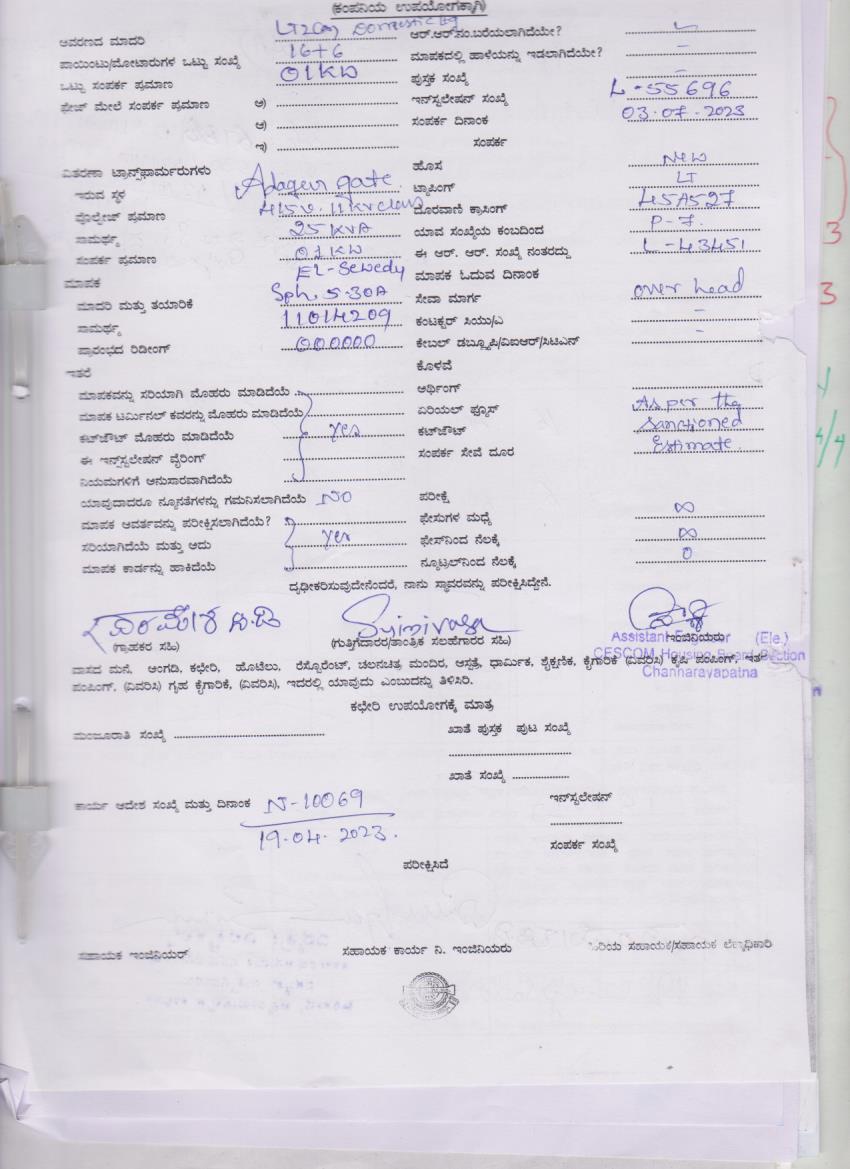 (ಕಂಪನಿಯ ಉಪಯೋಗಕ್ಕಾಗಿ)
ಆವರಣದ ಮಾದರಿ LT2(a) Domestic ltg ಆರ್.ಆರ್.ನಂ.ಬರೆಯಲಾಗಿದೆಯೇ?
ಪಾಯಿಂಟು/ಮೋಟಾರುಗಳ ಒಟ್ಟು ಸಂಖ್ಯೆ 16+6 ಮಾಪಕದಲ್ಲಿ ಹಾಳೆಯನ್ನು ಇಡಲಾಗಿದೆಯೇ? -
ಒಟ್ಟು ಸಂಪರ್ಕ ಪ್ರಮಾಣ 01KW ಪುಸ್ತಕ ಸಂಖ್ಯೆ -
ಫೇಜ್ ಮೇಲೆ ಸಂಪರ್ಕ ಪ್ರಮಾಣ ಅ) ಇನ್‌ಸ್ಟಲೇಷನ್ ಸಂಖ್ಯೆ L-55696
ಆ) ಸಂಪರ್ಕ ದಿನಾಂಕ 03.07.2023
ಇ) ಸಂಪರ್ಕ
ವಿತರಣಾ ಟ್ರಾನ್ಸ್‌ಫಾರ್ಮರುಗಳು ಹೊಸ New
ಇರುವ ಸ್ಥಳ gate ಟ್ಯಾಪಿಂಗ್ LT
ವೋಲ್ಟೇಜ್ ಪ್ರಮಾಣ 415v. 11kv class ದೂರವಾಣಿ ಕ್ರಾಸಿಂಗ್ 45A527
ಸಾಮರ್ಥ್ಯ 25 KVA ಯಾವ ಸಂಖ್ಯೆಯ ಕಂಬದಿಂದ P-7.
ಸಂಪರ್ಕ ಪ್ರಮಾಣ 01KW ಈ ಆರ್. ಆರ್. ಸಂಖ್ಯೆ ನಂತರದ್ದು L-43451
ಮಾಪಕ EL-Sewedy ಮಾಪಕ ಓದುವ ದಿನಾಂಕ
ಮಾದರಿ ಮತ್ತು ತಯಾರಿಕೆ Sph. 5-30A ಸೇವಾ ಮಾರ್ಗ over head
ಸಾಮರ್ಥ್ಯ 11014209 ಕಂಟಕ್ಟರ್ ಸಿಯು/ಎ -
ಪ್ರಾರಂಭದ ರಿಡೀಂಗ್ 000000 ಕೇಬಲ್ ಡಬ್ಲ್ಯೂಪಿ/ವಿಐಆರ್/ಸಿಟಿಎನ್ -
ಇತರೆ ಕೊಳವೆ
ಮಾಪಕವನ್ನು ಸರಿಯಾಗಿ ಮೊಹರು ಮಾಡಿದೆಯೆ ಅರ್ಥಿಂಗ್
ಮಾಪಕ ಟರ್ಮಿನಲ್ ಕವರನ್ನು ಮೊಹರು ಮಾಡಿದೆಯೆ ಏರಿಯಲ್ ಫ್ಯೂಸ್ As per the
ಕಟ್‌ಔಟ್ ಮೊಹರು ಮಾಡಿದೆಯೆ yes ಕಟ್‌ಔಟ್ Sanctioned
ಈ ಇನ್ಸ್‌ಸ್ಟಲೇಷನ್ ವೈರಿಂಗ್ ಸಂಪರ್ಕ ಸೇವೆ ದೂರ Estimate.
ನಿಯಮಗಳಿಗೆ ಅನುಸಾರವಾಗಿದೆಯೆ
ಯಾವುದಾದರೂ ನ್ಯೂನತೆಗಳನ್ನು ಗಮನಿಸಲಾಗಿದೆಯೆ NO ಪರೀಕ್ಷೆ
ಮಾಪಕ ಆವರ್ತವನ್ನು ಪರೀಕ್ಷಿಸಲಾಗಿದೆಯೆ? ಫೇಸುಗಳ ಮಧ್ಯೆ ∞
ಸರಿಯಾಗಿದೆಯೆ ಮತ್ತು ಅದು yes ಫೇಸ್‌ನಿಂದ ನೆಲಕ್ಕೆ ∞
ಮಾಪಕ ಕಾರ್ಡನ್ನು ಹಾಕಿದೆಯೆ ನ್ಯೂಟ್ರಲ್‌ನಿಂದ ನೆಲಕ್ಕೆ 0
ದೃಢೀಕರಿಸುವುದೇನೆಂದರೆ, ನಾನು ಸ್ಥಾವರವನ್ನು ಪರೀಕ್ಷಿಸಿದ್ದೇನೆ.
(ಗ್ರಾಹಕರ ಸಹಿ) (ಗುತ್ತಿಗೆದಾರರ/ತಾಂತ್ರಿಕ ಸಲಹೆಗಾರರ ಸಹಿ) ಇಂಜಿನಿಯರು
Assistant (Ele.)
CESCOM Housing Board Section
Channarayapatna
ವಾಸದ ಮನೆ, ಅಂಗಡಿ, ಕಛೇರಿ, ಹೊಟೆಲು, ರೆಸ್ಟೋರೆಂಟ್, ಚಲನಚಿತ್ರ ಮಂದಿರ, ಆಸ್ಪತ್ರೆ, ಧಾರ್ಮಿಕ, ಶೈಕ್ಷಣಿಕ, ಕೈಗಾರಿಕೆ (ವಿವರಿಸಿ) ಕೃಷಿ ಪಂಪಿಂಗ್, ಇತರ
ಪಂಪಿಂಗ್, (ವಿವರಿಸಿ) ಗೃಹ ಕೈಗಾರಿಕೆ, (ವಿವರಿಸಿ), ಇದರಲ್ಲಿ ಯಾವುದು ಎಂಬುದನ್ನು ತಿಳಿಸಿರಿ.
ಕಛೇರಿ ಉಪಯೋಗಕ್ಕೆ ಮಾತ್ರ
ಮಂಜೂರಾತಿ ಸಂಖ್ಯೆ ಖಾತೆ ಪುಸ್ತಕ ಪುಟ ಸಂಖ್ಯೆ
ಖಾತೆ ಸಂಖ್ಯೆ
ಕಾರ್ಯ ಆದೇಶ ಸಂಖ್ಯೆ ಮತ್ತು ದಿನಾಂಕ N-10069 ಇನ್‌ಸ್ಟಲೇಷನ್
19.04.2023.
ಸಂಪರ್ಕ ಸಂಖ್ಯೆ
ಪರೀಕ್ಷಿಸಿದೆ
ಸಹಾಯಕ ಇಂಜಿನಿಯರ್ ಸಹಾಯಕ ಕಾರ್ಯ ನಿ. ಇಂಜಿನಿಯರು ಹಿರಿಯ ಸಹಾಯಕ/ಸಹಾಯಕ ಲೆಕ್ಕಾಧಿಕಾರಿ